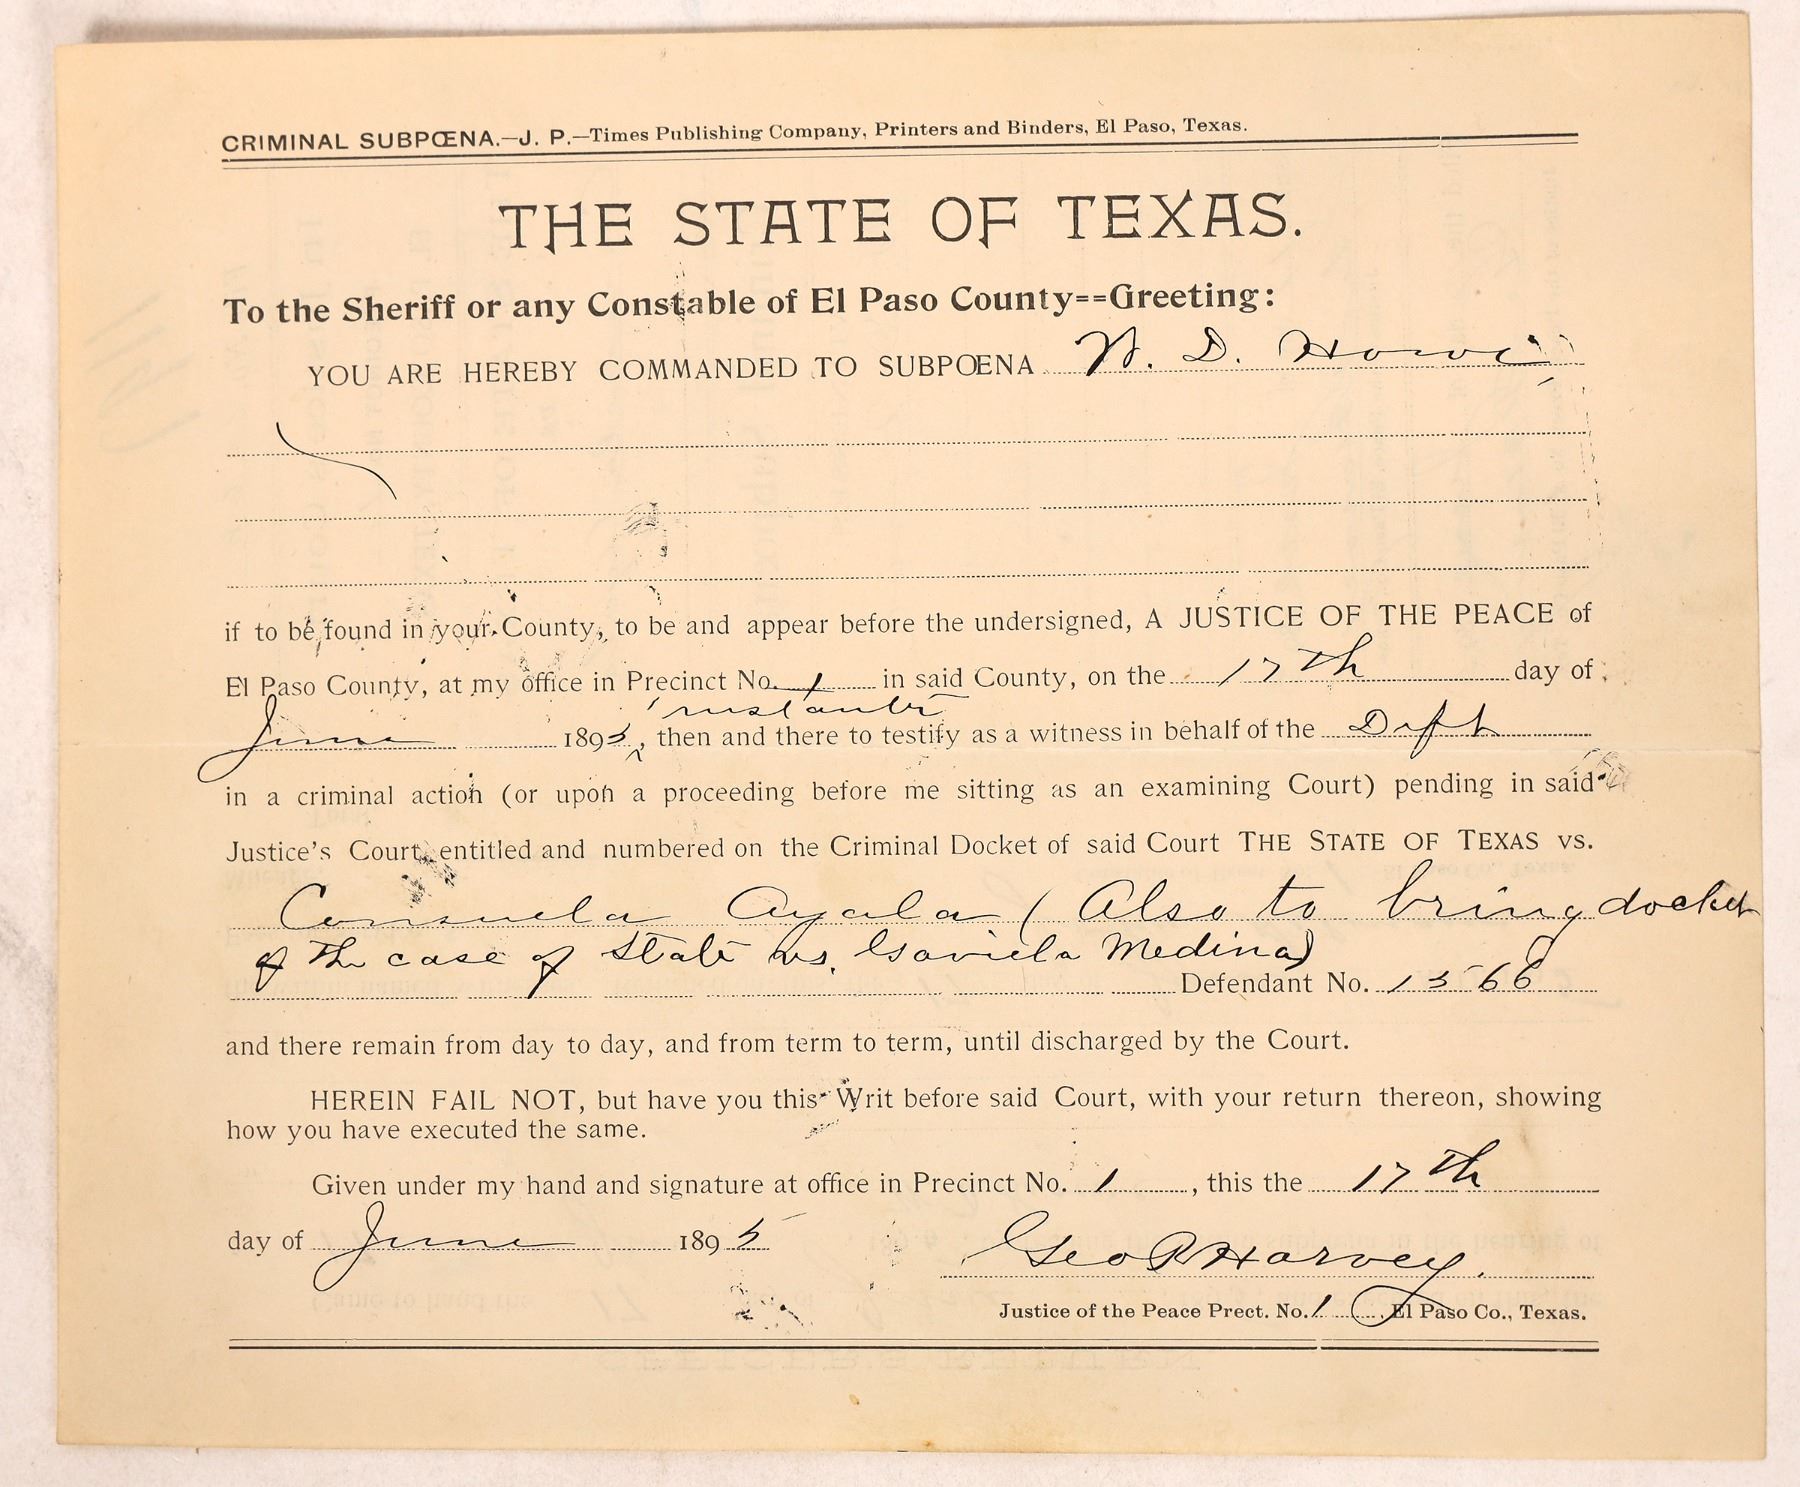 CRIMINAL SUBPŒNA.—J. P.—Times Publishing Company, Printers and Binders, El Paso, Texas.
THE STATE OF TEXAS.
To the Sheriff or any Constable of El Paso County==Greeting:
YOU ARE HEREBY COMMANDED TO SUBPŒNA W. D. Howe
if to be found in your County, to be and appear before the undersigned, A JUSTICE OF THE PEACE of
El Paso County, at my office in Precinct No. 1 in said County, on the 17th day of
instanter
June 1895, then and there to testify as a witness in behalf of the Deft
in a criminal action (or upon a proceeding before me sitting as an examining Court) pending in said
Justice's Court, entitled and numbered on the Criminal Docket of said Court THE STATE OF TEXAS VS.
Consuela Ayala (Also to bring docket
of the case of State vs. Gaviela Medina)
Defendant No. 1566
and there remain from day to day, and from term to term, until discharged by the Court.
HEREIN FAIL NOT, but have you this Writ before said Court, with your return thereon, showing
how you have executed the same.
Given under my hand and signature at office in Precinct No. 1, this the 17th
day of June 1895 Geo R Harvey.
Justice of the Peace Prect. No. 1, El Paso Co., Texas.